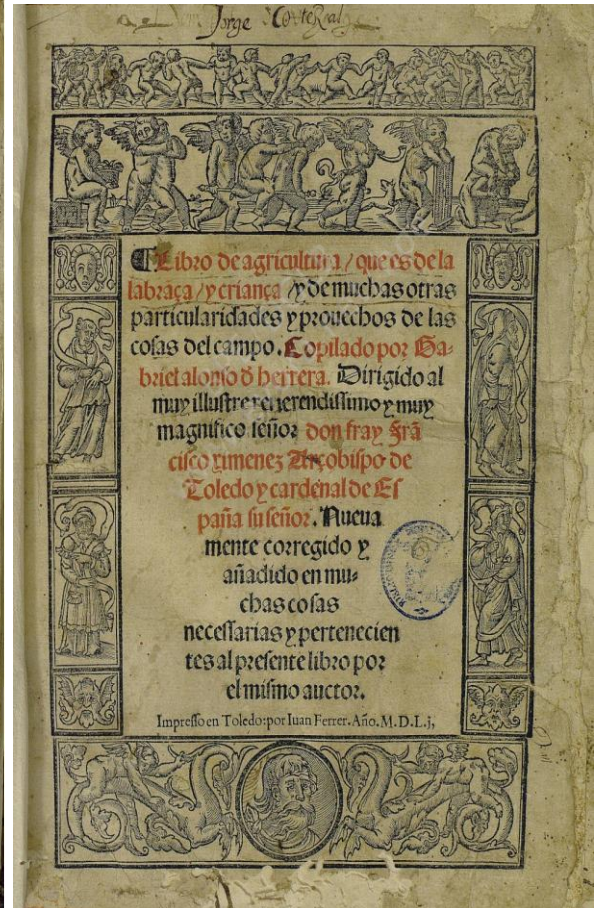 Jorge
Libro de agricultura / que es de la
labrãça / y criança / y de muchas otras
particularidades y prouechos de las
cosas del campo. Copilado por Ga-
briel alonso d̃ herrera. Dirigido al
muy illustre reuerendissimo y muy
magnifico señor don fray Frã
cisco ximenez Arçobispo de
Toledo y cardenal de Es
paña su señor. Nueua
mente corregido y
añadido en mu-
chas cosas
necessarias y pertenecien
tes al presente libro por
el mismo auctor.
Impresso en Toledo: por Iuan Ferrer. Año. M. D. L. j,